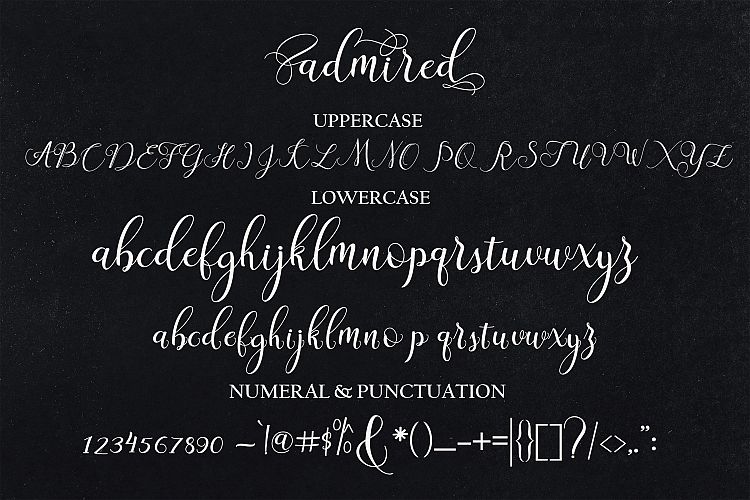 admired
UPPERCASE
ABCDEFGHIJKLMNO PQ RSTUVWXYZ
LOWERCASE
abcdefghijklmnopqrstuvwxyz
abcdefghijklmno p qrstuvwxyz
NUMERAL & PUNCTUATION
1234567890 ~`!@#$%&*()_-+=|{}[]?/<>,.":